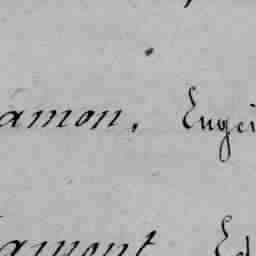 amon, Eugè
amont Ed